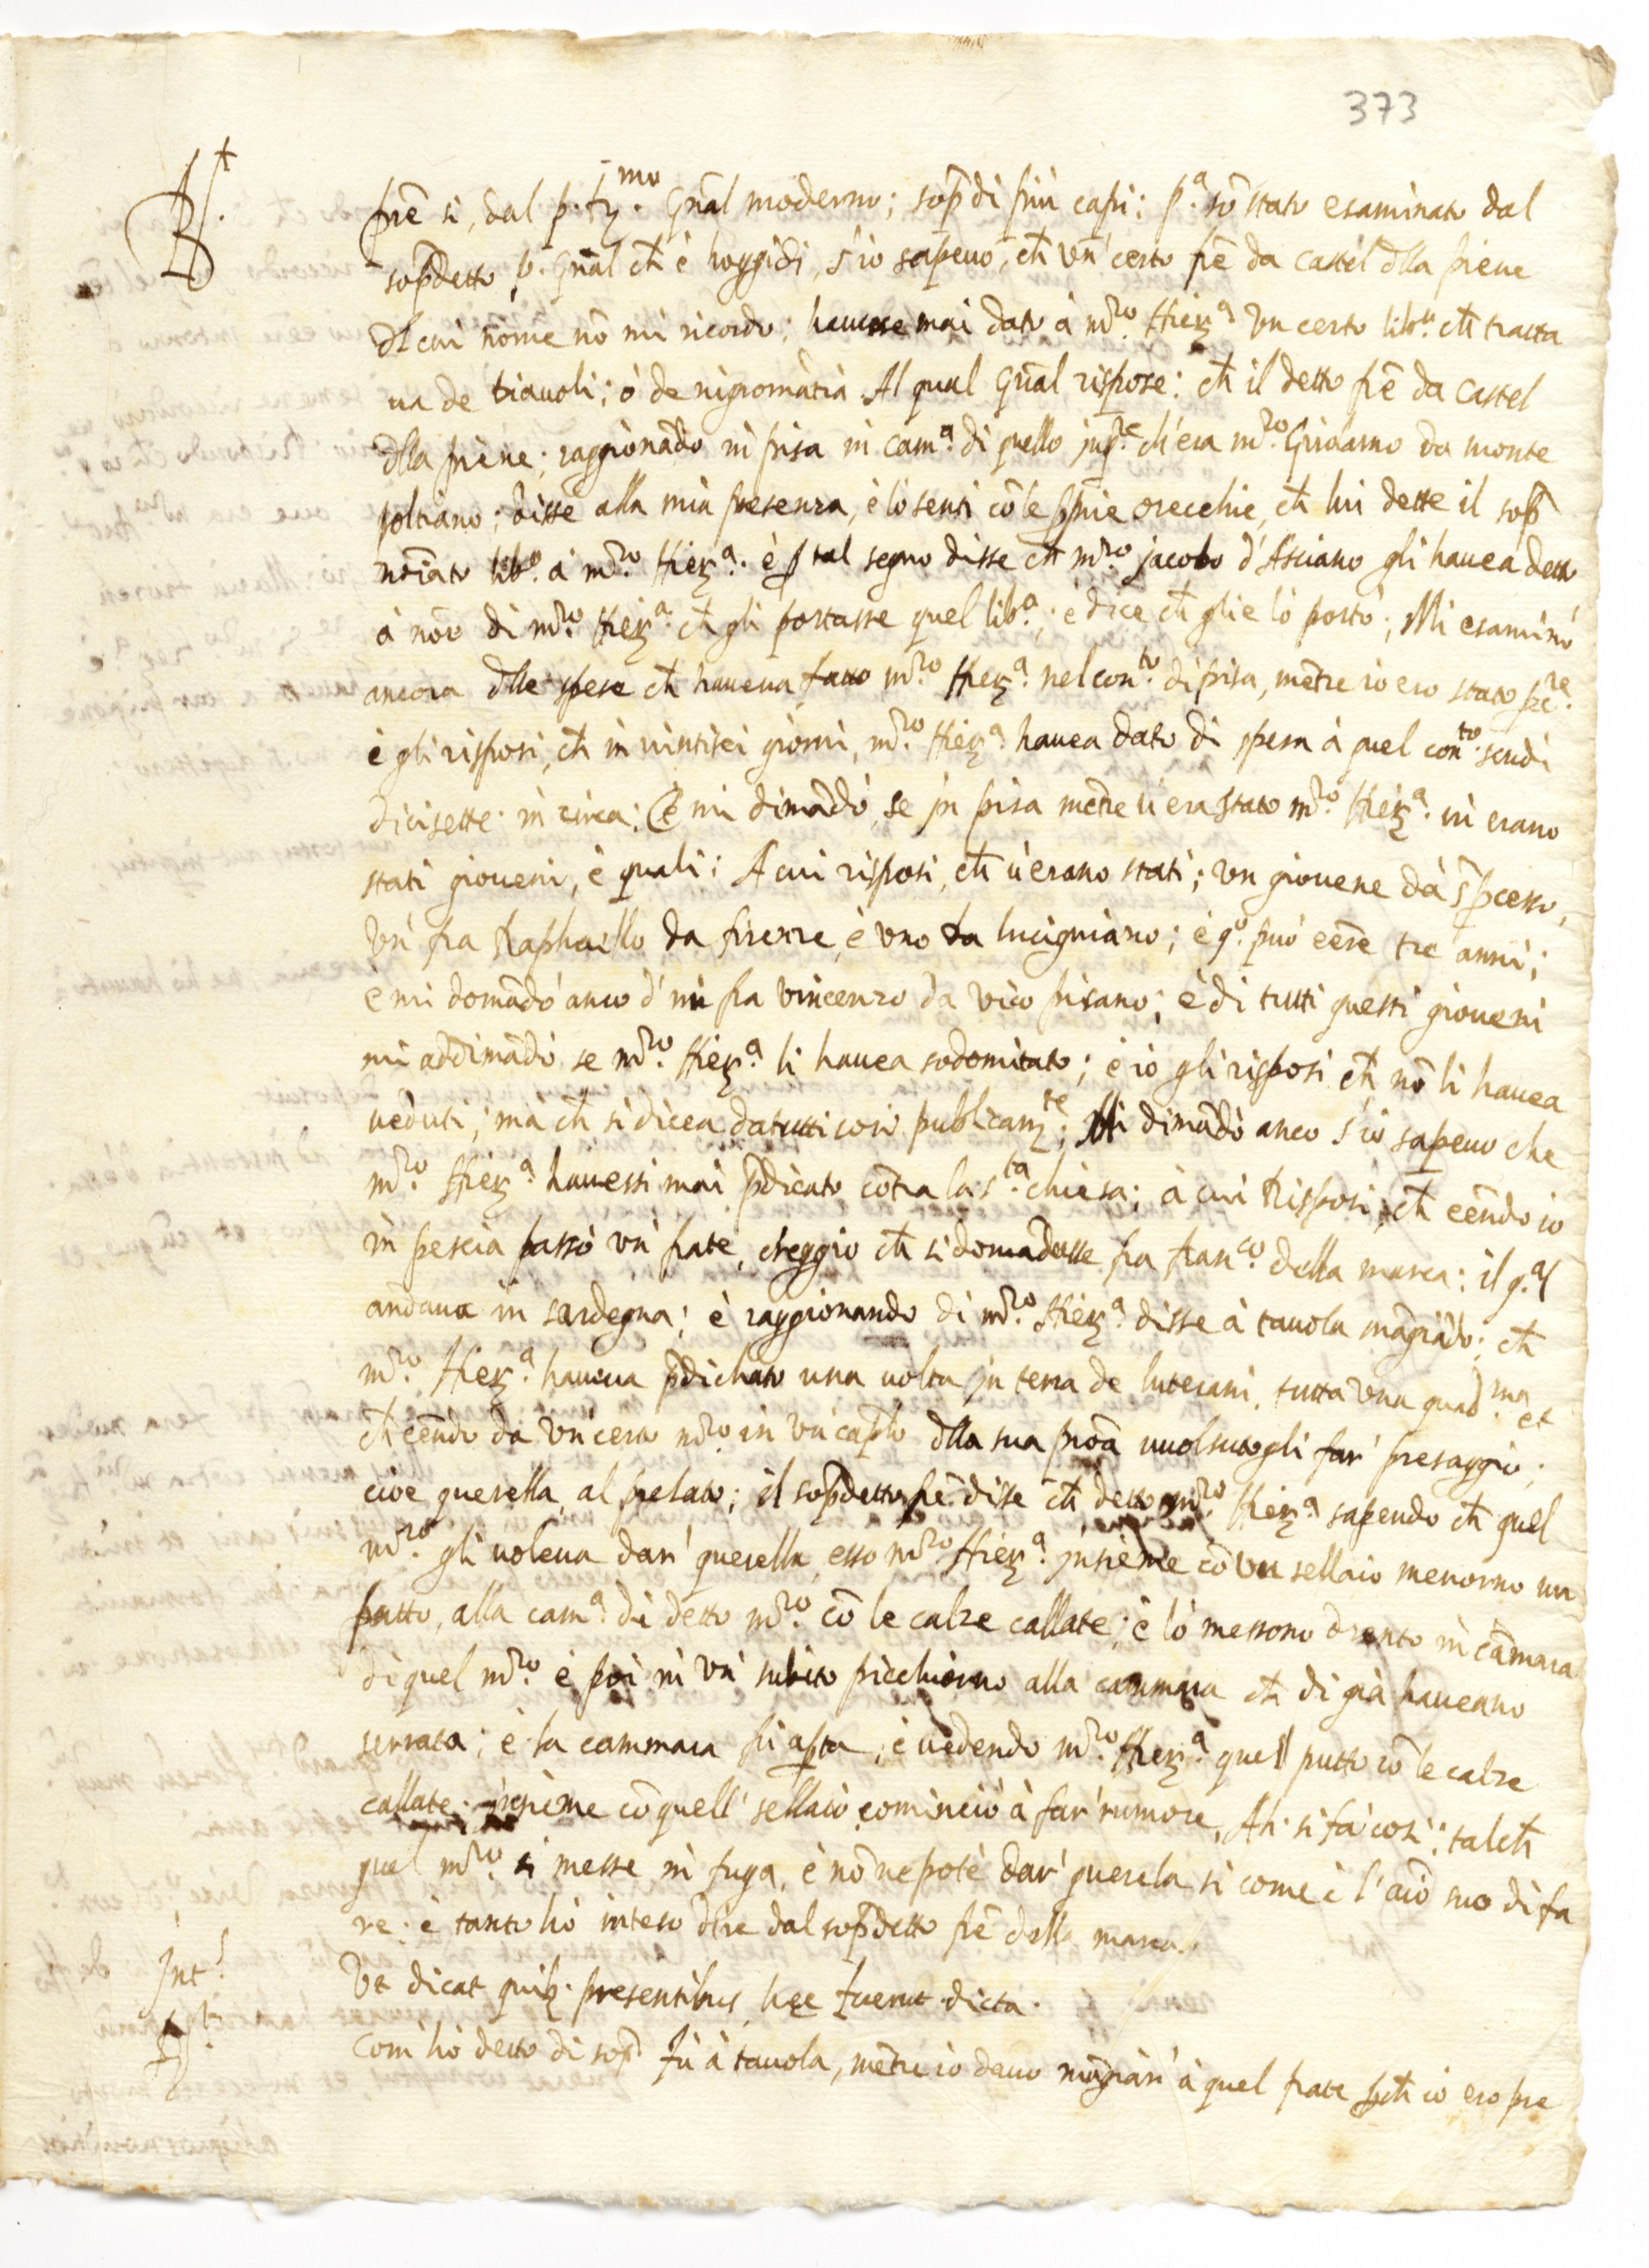 373
Rt.
frē si, dal p. fr. mo Gñal moderno; sop̄ di più capi: pa. sō stato esaminato dal
sop̄detto p. Gñal ch̄ è hoggidi, s'io sapeuo, ch̄ vn' certo frē da castel dlla pieue
dl cui nome nō mi ricordo; hauesse mai dato à mro. Hiera vn certo libo. ch̄ tracta
ua de diauoli; ò de nigromātia. Al qual Gñal rispose: ch̄ il detto frē da castel
dlla pieue; raggionādo in pisa in cama. di quello ch'era mro. Grisarno da monte
poltiano; disse alla mia presenza, è lo senti cō le ꝓprie orecchie, ch̄ lui dette il sop̄
noīato libo. à mro. Hiera. è ꝑ tal segno disse ch̄ mro. jacobo d'Asciano gli hauea detto
à nōe di mro. Hiera ch̄ gli portasse quel libo.; è dice ch̄ glie lo portò; Mi esaminò
ancora dlle spese ch̄ haueua fatto mro. Hiera. nel conto. di pisa, mētre io ero stato prre.
è gli risposi, ch̄ in uintisei giorni, mro. Hiera hauea dato di spesa à quel conto. scudi
dicisette in circa; è mi dimādò, se jn pisa mētre u'era stato mro. Hiera. ui erano
stati gioueni, è quali; A cui risposi, ch̄ u'erano stati; vn giouene da
vn' fra Raphaello da firenze, è vno da lucigniano; è qo. può eēre tre anni;
è mi domādò anco d'un fra vincenzo da vico pisano; è di tutti questi gioueni
mi addimādò se mro. Hiera li hauea sodomitato; è io gli risposi ch̄ nō li hauea
ueduti, mà ch̄ si dicea da tutti così publicamte; Mi dimādò anco s'io sapeuo che
mro. Hiera hauessi mai p̄dicato cōtra la sta. chiesa; à cui Risposi, ch̄ eēndo io
in pescia passò vn' frate, chreggio ch̄ si domādasse fra franco. della marca; il qal
andaua in sardegna; è raggionando di mro. Hiera disse à tauola māgiādo; ch̄
mro. Hiera haueua p̄dichato una uolta jn terra de luterani, tutta vna quadma. et
ch̄ eēndo da vn' certo mro. in vn' caplo dlla sua proā uuolsutogli far' presaggio;
cioè querella, al prelato; il sop̄detto frē disse ch̄ detto mro. Hiera sapendo ch̄ quel
mro. gli uoleua dar' querella, esso mro. Hiera. jnsieme cō vn sellaio menorno un
putto, alla cama. di detto mro. cō le calze callate; è lo messono drento in cāmara
di quel mro. è poi in vn' subito picchiorno alla cammara ch̄ di già haueano
serrata; è la cammara fù aꝑta, è uedendo mro. Hiera quel putto cō le calze
callate. jnsieme cō quell' sellaio cominciò à far' rumore, Ah si fà cosi: talch̄
quel mro. si messe in fuga, è nō ne potè dar' querela si come è l'aīo suo di fa
re. è tanto hò inteso dire dal sop̄detto frē della marca.
Intus.
Vt dicat quibꝫ. presentibus hęc fuerūt dicta.
Rt.
Com' hò detto di sop̄ fù à tauola, mētre io dauo māgiar' à quel frate ꝑch̄ io ero pre